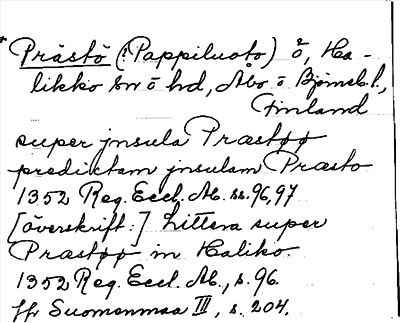 * Prästö (: Pappiluoto) ö, Ha-
likko sn o hd, Åbo o Björneb. l.,
Finland
super jnsula Præstøø
predictam jnsulam Præsto
1352 Reg. Eccl. Ab. ss. 96, 97
[överskrift:] Littera super
Præstøø in Haliko.
1352 Reg. Eccl. Ab., s. 96.
Jfr Suomenmaa III, s. 204.